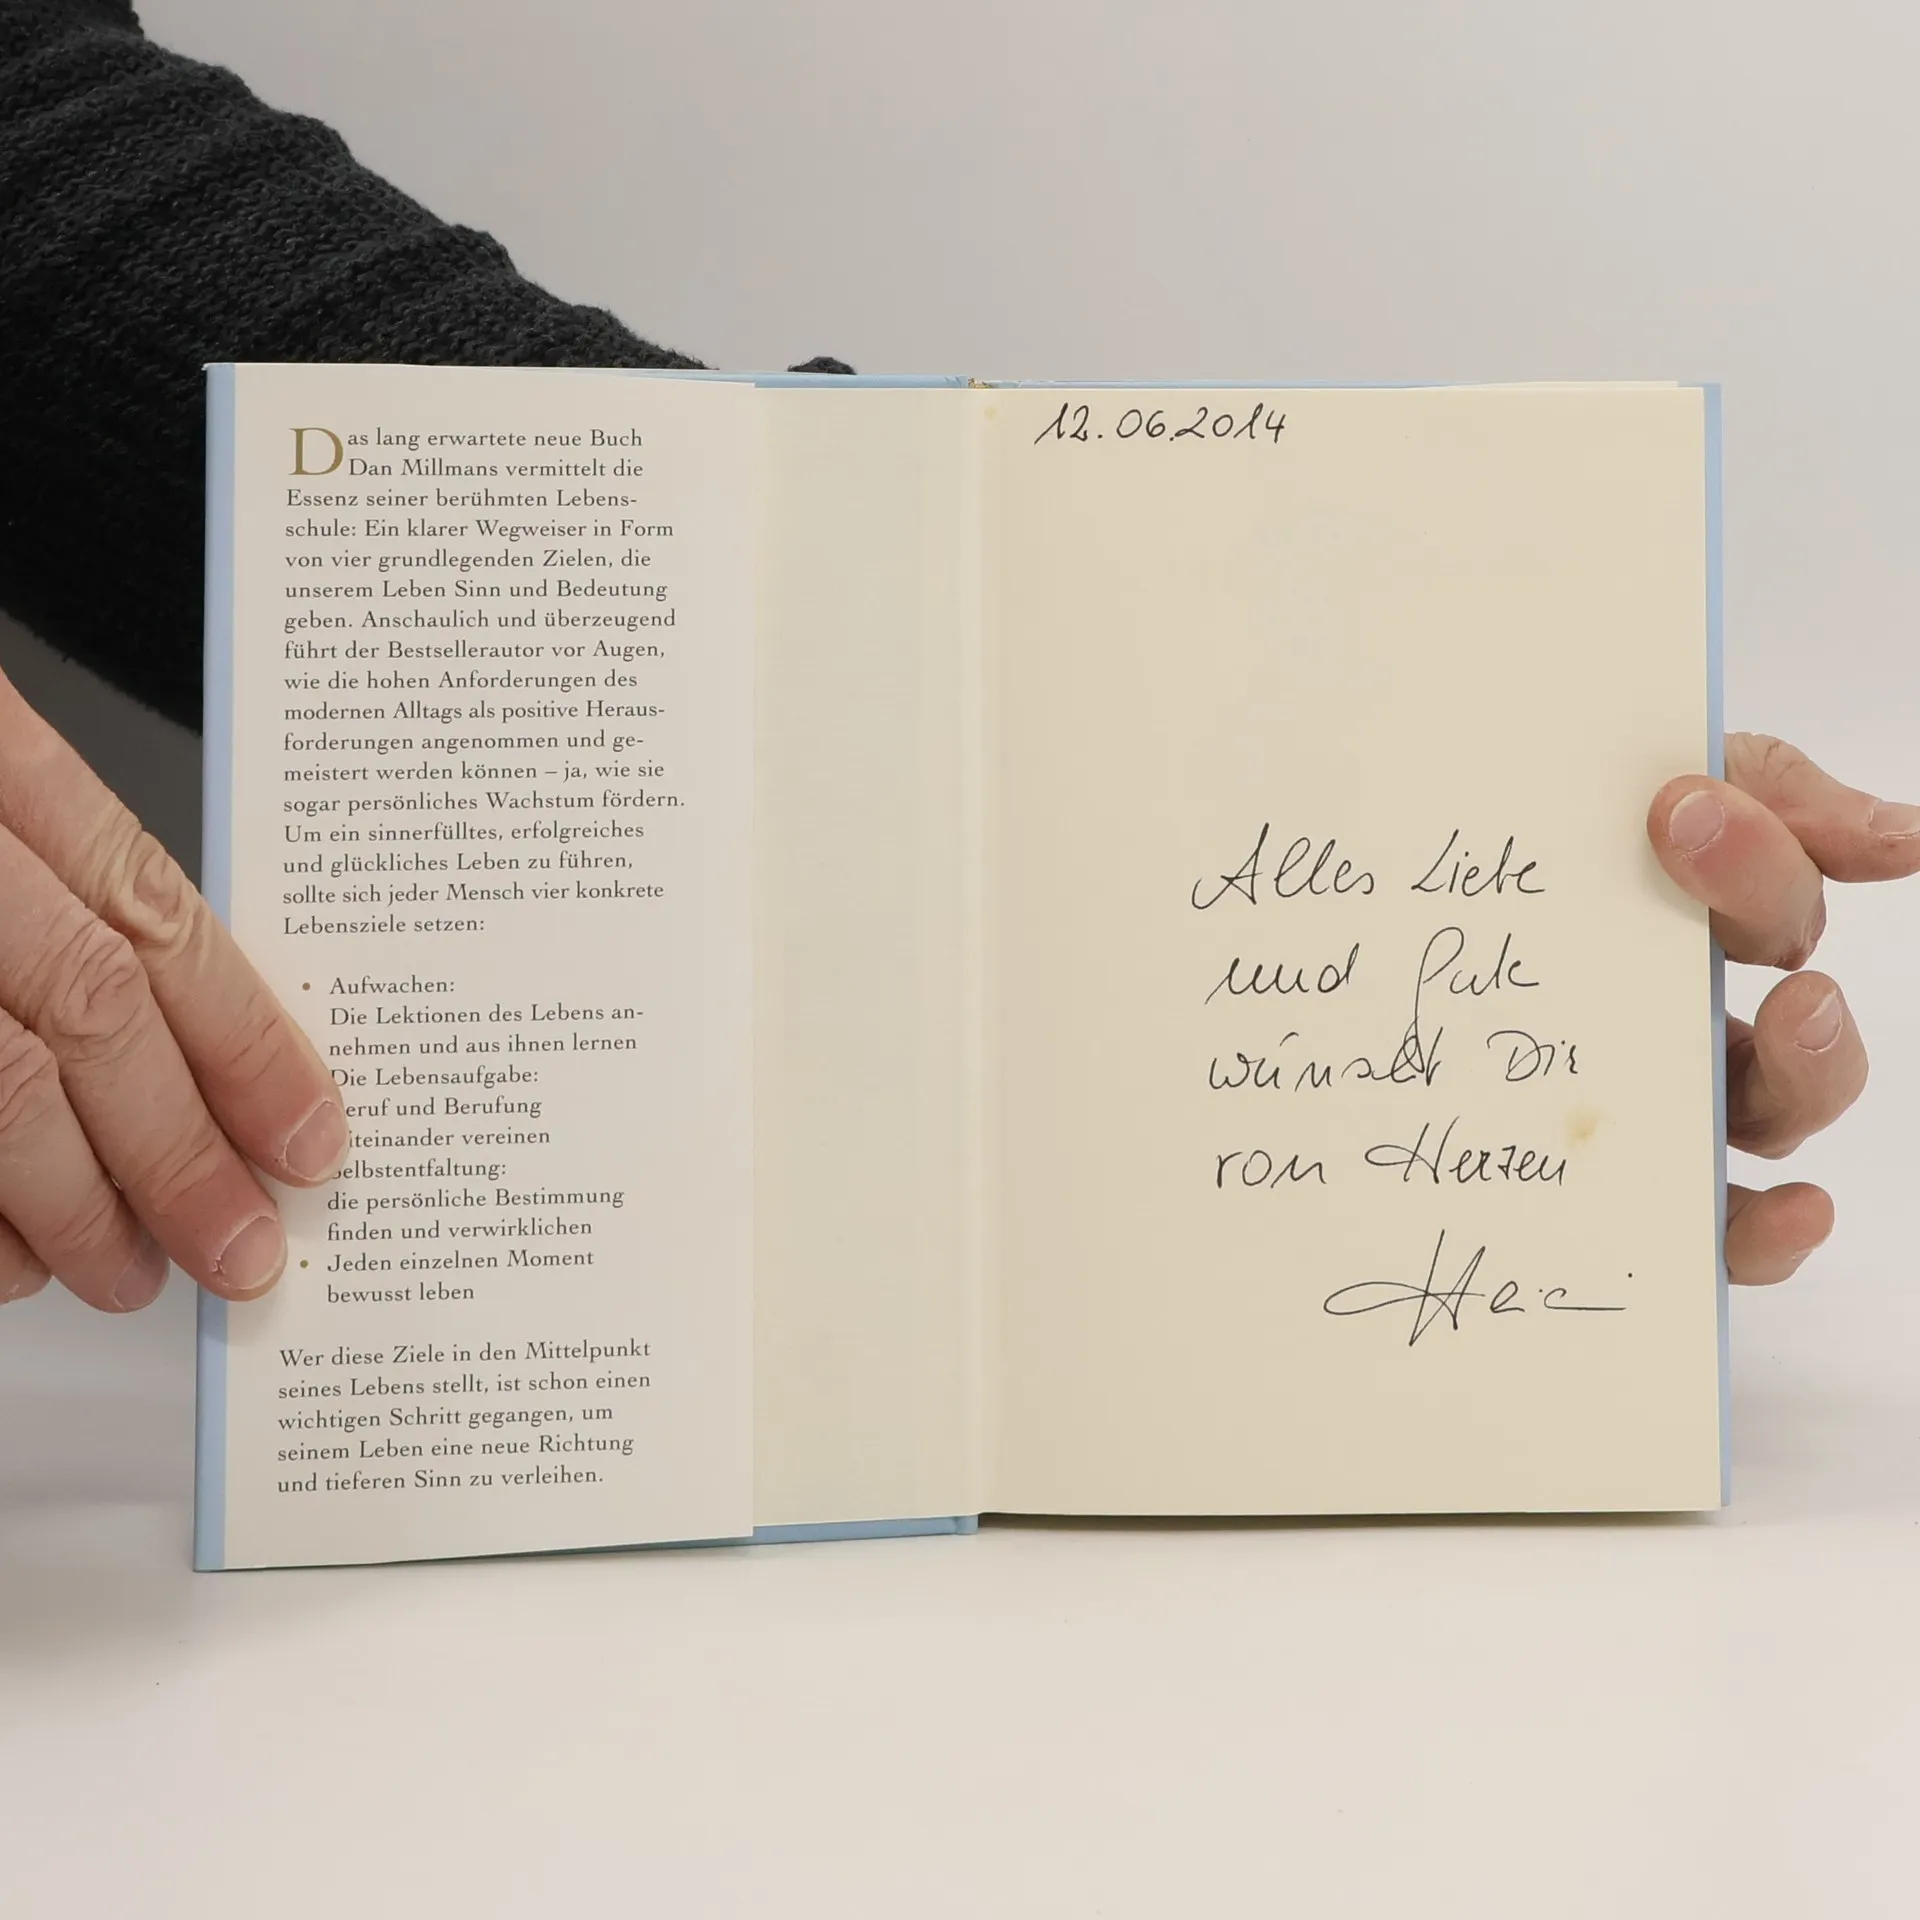 Das lang erwartete neue Buch
Dan Millmans vermittelt die
Essenz seiner berühmten Lebens-
schule: Ein klarer Wegweiser in Form
von vier grundlegenden Zielen, die
unserem Leben Sinn und Bedeutung
geben. Anschaulich und überzeugend
führt der Bestsellerautor vor Augen,
wie die hohen Anforderungen des
modernen Alltags als positive Heraus-
forderungen angenommen und ge-
meistert werden können – ja, wie sie
sogar persönliches Wachstum fördern.
Um ein sinnerfülltes, erfolgreiches
und glückliches Leben zu führen,
sollte sich jeder Mensch vier konkrete
Lebensziele setzen:
• Aufwachen:
Die Lektionen des Lebens an-
nehmen und aus ihnen lernen
Die Lebensaufgabe:
eruf und Berufung
iteinander vereinen
Selbstentfaltung:
die persönliche Bestimmung
finden und verwirklichen
• Jeden einzelnen Moment
bewusst leben
Wer diese Ziele in den Mittelpunkt
seines Lebens stellt, ist schon einen
wichtigen Schritt gegangen, um
seinem Leben eine neue Richtung
und tieferen Sinn zu verleihen.
12.06.2014
Alles Liebe
und Gute
wünscht Dir
von Herzen